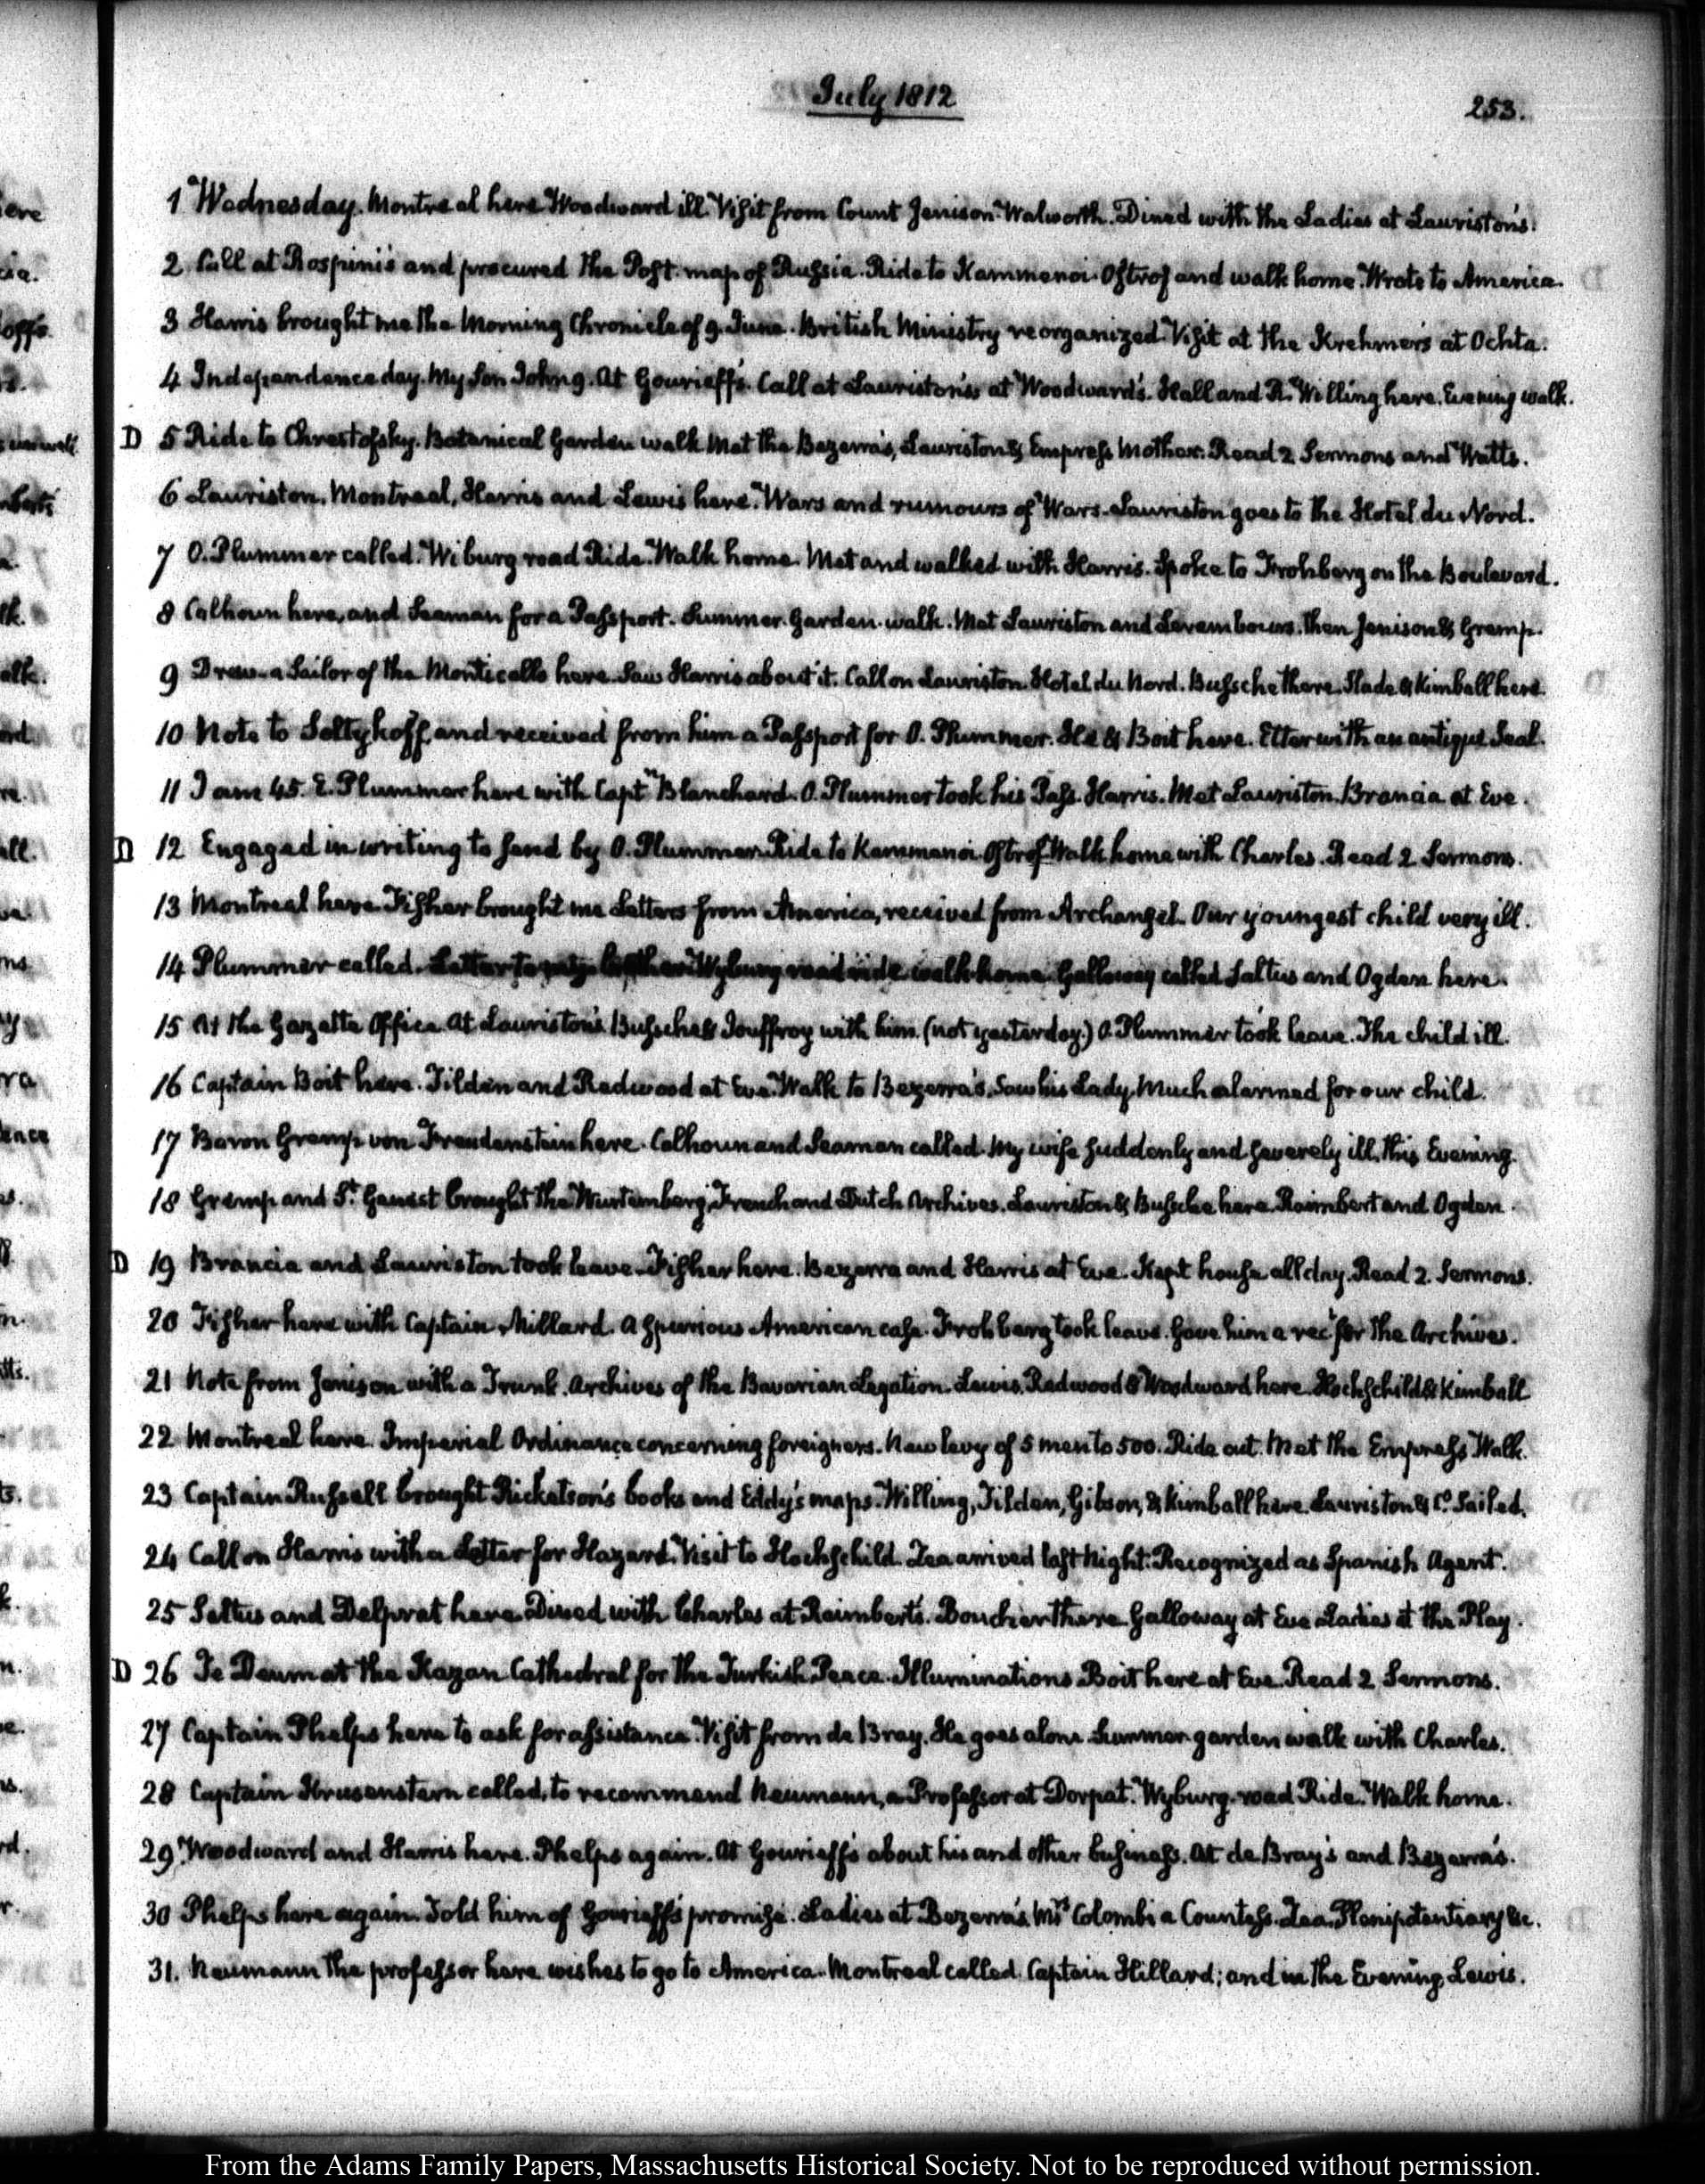 July 1812
253.
1 Wednesday. Montreal here Woodward ill. Visit from Count Jenison Walworth. Dined with the Ladies at Lauriston's.
2 Call at Rospini's and procured the Post map of Russia. Ride to Kammenoi Ostrof and walk home. Wrote to America.
3 Harris brought me the Morning Chronicle of 9. June. British Ministry reorganized. Visit at the Krehmer's at Ochta.
4 Independence day. My Son John 9. At Gourieff's. Call at Lauriston's at Woodward's. Hall and R. Willing here. Evening walk.
D 5 Ride to Chrestofsky. Botanical Garden walk Met the Bezerra's, Lauriston & Empress Mother. Read 2 Sermons and Watts.
6 Lauriston, Montreal, Harris and Lewis here. Wars and rumours of Wars. Lauriston goes to the Hotel du Nord.
7 O. Plummer called. Wiburg road Ride. Walk home. Met and walked with Harris. Spoke to Frohberg on the Boulevard.
8 Calhoun here, and Seaman for a Passport. Summer Garden walk. Met Lauriston and Lerembours. then Jenison & Gremp.
9 Drew a Sailor of the Monticello here. Saw Harris about it. Call on Lauriston. Hotel du Nord. Bussche there. Slade & Kimball here.
10 Note to Soltykoff, and received from him a Passport for O. Plummer. He & Boit here. Etter with an antique Seal.
11 I am 45. E. Plummer here with Capt.n Blanchard. O. Plummer took his Pass. Harris. Met Lauriston. Brancia at Eve.
D 12 Engaged in writing to send by O. Plummer. Ride to Kammenoi Ostrof. Walk home with Charles. Read 2 Sermons.
13 Montreal here. Fisher brought me Letters from America, received from Archangel. Our youngest child very ill.
14 Plummer called. Letter to my Wyburg road ride walk home. Galloway called Saltus and Ogden here.
15 At the Gazette Office. At Lauriston's. Bussche & Jouffroy with him. (not yesterday.) O. Plummer took leave. The child ill.
16 Captain Boit here. Tilden and Redwood at Eve. Walk to Bezerra's. Saw his Lady. Much alarmed for our child.
17 Baron Gremp von Freudenstein here. Calhoun and Seaman called. My wife suddenly and severely ill, this Evening.
18 Gremp and St. Genest brought the Wurtemberg, French and Dutch Archives. Lauriston & Bussche here. Raimbert and Ogden.
D 19 Brancia and Lauriston took leave. Fisher here. Bezerra and Harris at Eve. Kept house all day. Read 2. Sermons.
20 Fisher here with Captain Millard. A spurious American case. Frohberg took leave. Gave him a rect for the Archives.
21 Note from Jenison with a Trunk. Archives of the Bavarian Legation. Lewis, Redwood & Woodward here. Hochschild & Kimball
22 Montreal here. Imperial Ordinance concerning foreigners. New levy of 5 men to 500. Ride out. Met the Empress Walk.
23 Captain Russell brought Ricketson's books and Eddy's maps. Willing, Tilden, Gibson, & Kimball here. Lauriston & Co. Sailed.
24 Call on Harris with a Letter for Hazard. Visit to Hochschild. Zea arrived last Night. Recognized as Spanish Agent.
25 Saltus and Delprat here. Dined with Charles at Raimbert's. Boucher there. Galloway at Eve. Ladies at the Play.
D 26 Te Deum at the Kazan Cathedral for the Turkish Peace. Illuminations. Boit here at Eve. Read 2 Sermons.
27 Captain Phelps here to ask for assistance. Visit from de Bray. He goes alone. Summer garden walk with Charles.
28 Captain Krusenstern called, to recommend Neumann, a Professor at Dorpat. Wyburg road Ride. Walk home.
29 Woodward and Harris here. Phelps again. At Gourieff's about his and other business. At de Bray's and Bezerra's.
30 Phelps here again. Told him of Gourieff's promise. Ladies at Bezerra's. Mrs Colombi a Countess. Zea. Plenipotentiary &c.
31. Neumann the professor here wishes to go to America. Montreal called. Captain Hillard; and in the Evening, Lewis.
From the Adams Family Papers, Massachusetts Historical Society. Not to be reproduced without permission.